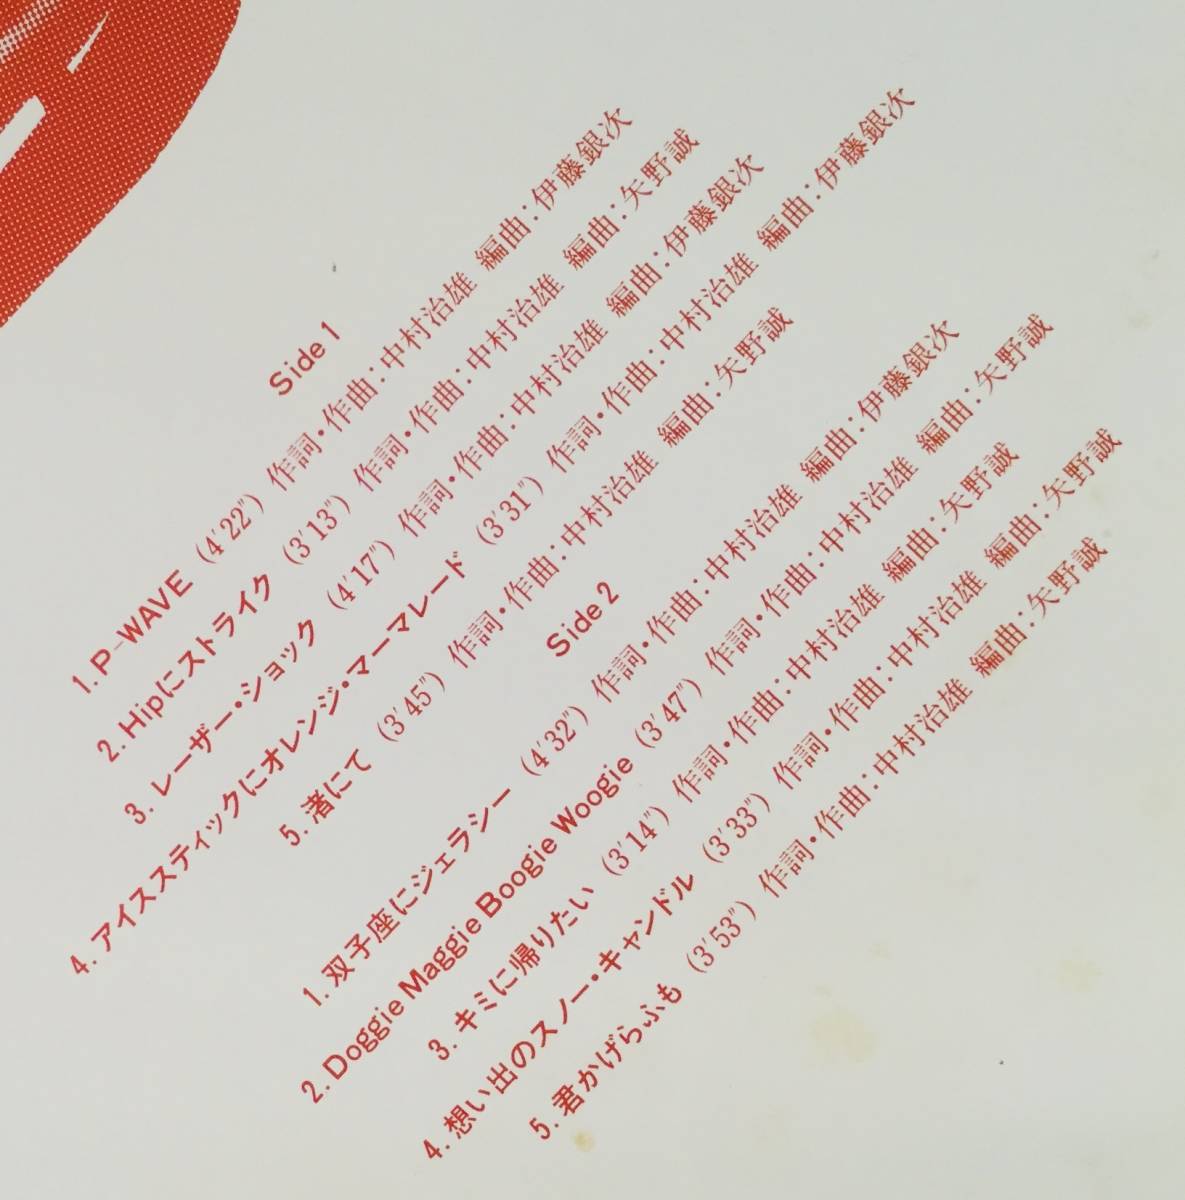 Side 1
1. P-WAVE (4′22″) 作詞・作曲：中村治雄 編曲：伊藤銀次
2. Hipにストライク (3′13″) 作詞・作曲：中村治雄 編曲：矢野誠
3. レーザー・ショック (4′17″) 作詞・作曲：中村治雄 編曲：伊藤銀次
4. アイススティックにオレンジ・マーマレード (3′31″) 作詞・作曲：中村治雄 編曲：伊藤銀次
5. 渚にて (3′45″) 作詞・作曲：中村治雄 編曲：矢野誠
Side 2
1. 双子座にジェラシー (4′32″) 作詞・作曲：中村治雄 編曲：伊藤銀次
2. Doggie Maggie Boogie Woogie (3′47″) 作詞・作曲：中村治雄 編曲：矢野誠
3. キミに帰りたい (3′14″) 作詞・作曲：中村治雄 編曲：矢野誠
4. 想い出のスノー・キャンドル (3′33″) 作詞・作曲：中村治雄 編曲：矢野誠
5. 君かげらふも (3′53″) 作詞・作曲：中村治雄 編曲：矢野誠